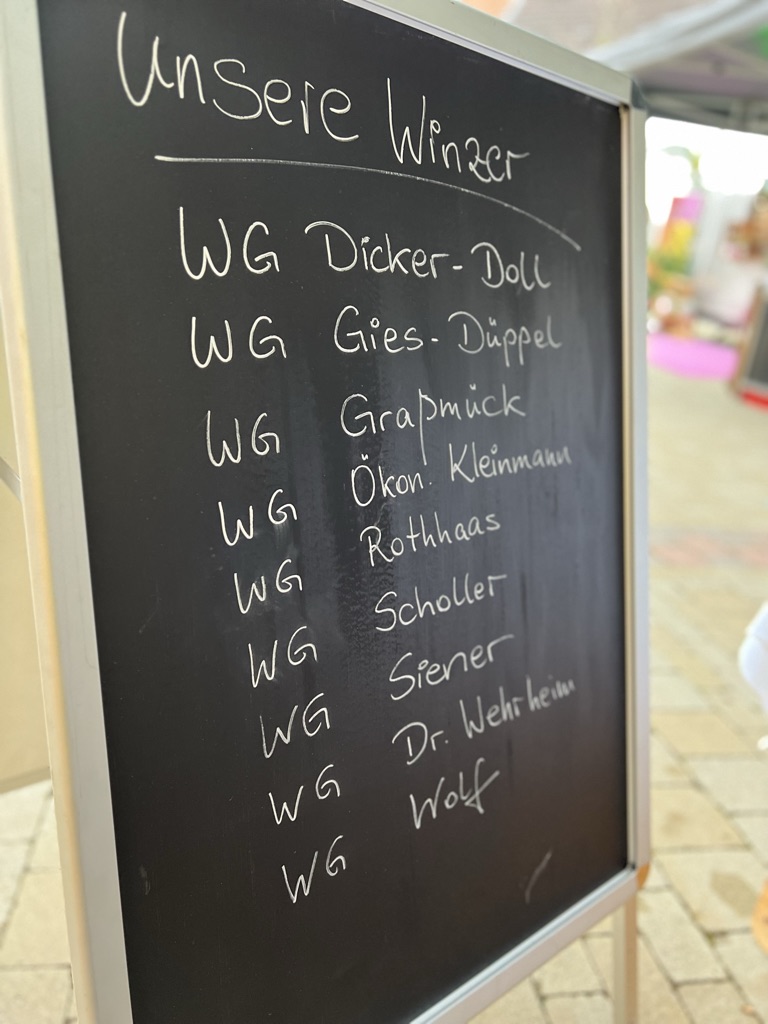 Unsere Winzer
WG Dicker-Doll
WG Gies-Düppel
WG Graßmück
WG Ökon. Kleinmann
WG Rothhaas
WG Scholler
WG Siener
WG Dr. Wehrheim
WG Wolf